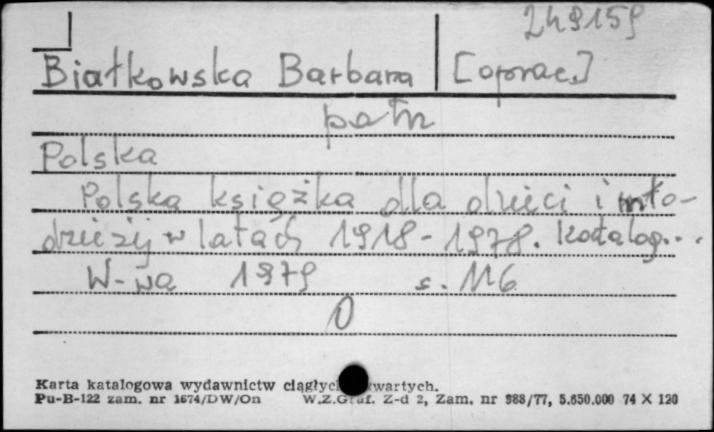 249159
Białkowska Barbara [oprac.]
patrz
Polska
Polska książka dla dzieci i mło-
dzieży w latach 1918-1978. Katalog...
W-wa 1979 s. 116
0
Karta katalogowa wydawnictw ciągłych wartych.
Pu-B-122 zam. nr 1674/DW/On W.Z.Graf. Z-d 2, Zam. nr 988/77, 5.650.000 74 X 120